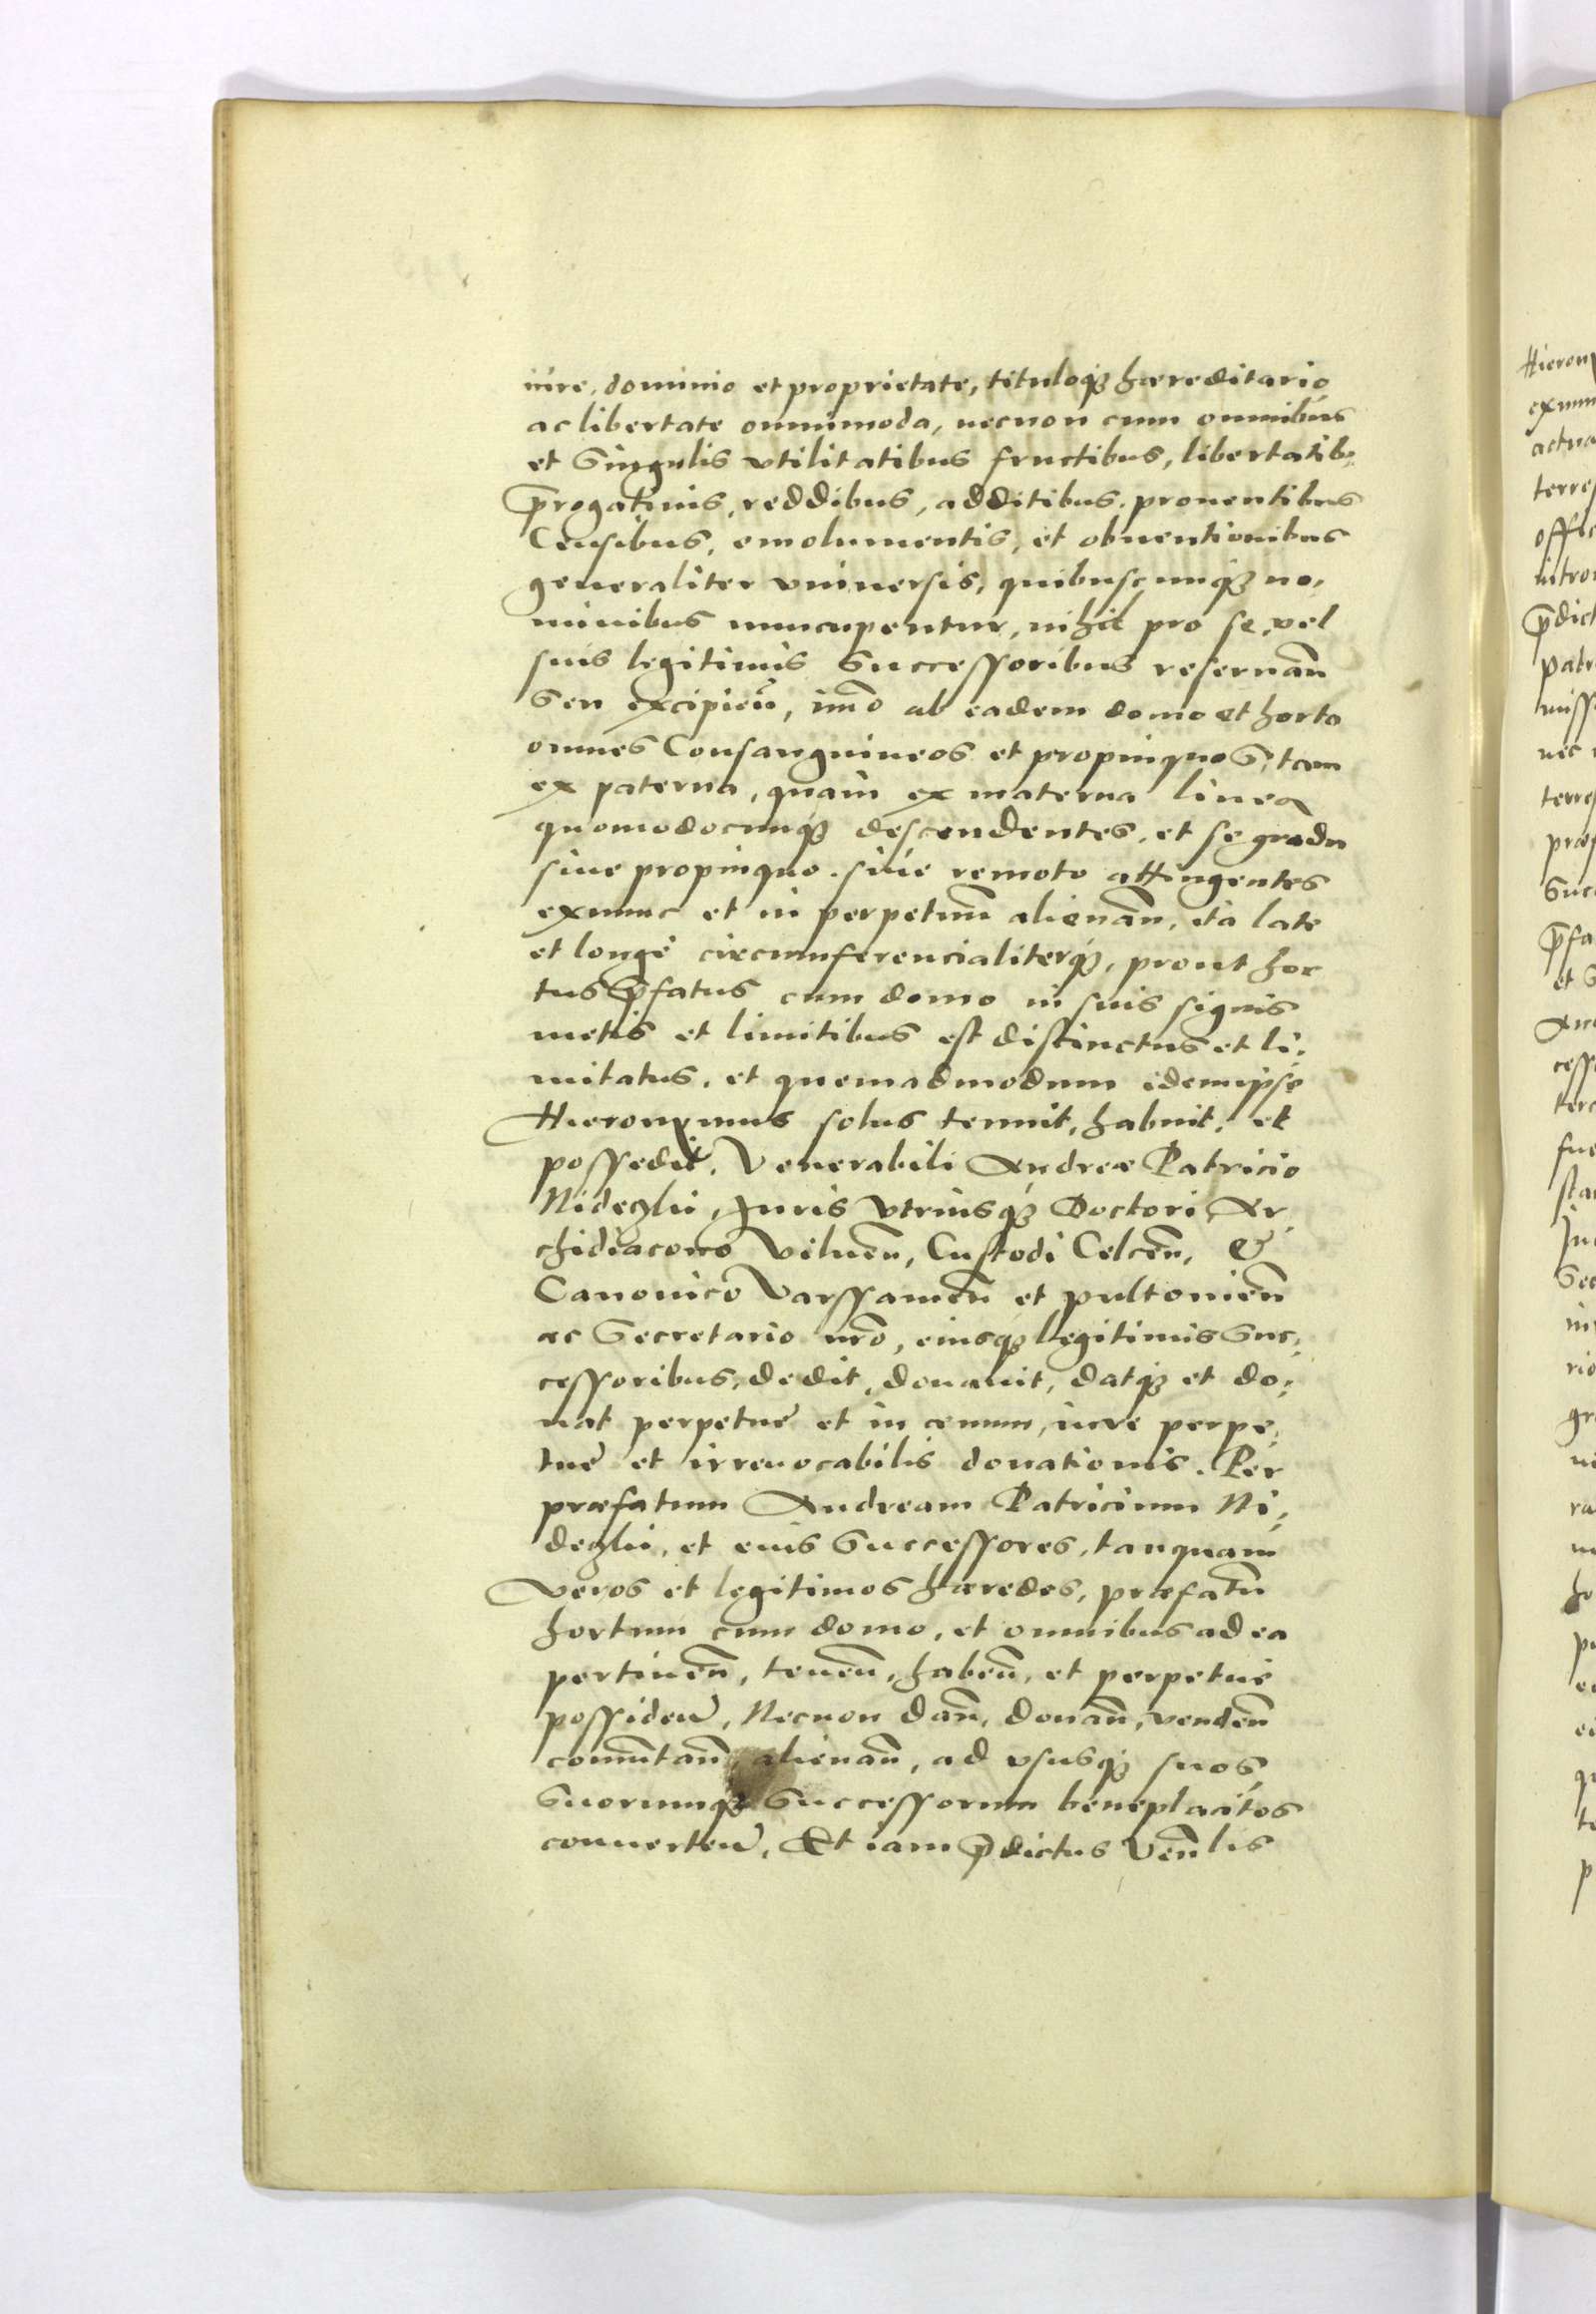 iure, dominio et proprietate, tituloq₃ hæreditario
ac libertate omnimoda, necnon cum omnibus
et Singulis vtilitatibus fructibus, libertatib₉
p̄rogatiuis, reddibus, additibus, prouentibus
Censibus, emolumentis, et obuentionibus
generaliter vniuersis, quibuscunq₃ no,
minibus nuncupentur, nihil pro se, vel
suis legitimis Successoribus reseruan̄
Seu excipien̄, im̄o ab eadem domo et horto
omnes Consanguineos et propinquos, tam
ex paterna, quam ex materna linea
quomodocunq₃ descendentes, et se gradu
siue propinquo, siue remoto attingentes
exnunc et in perpetuum alienan̄, ita late
et longe circumferencialiterq₃, prout hor
tus p̄fatus cum domo in suis signis
metis et limitibus est distinctus et li,
mitatus, et quemadmodum idemipse
Hieronymus solus tenuit, habuit, et
possedit, Venerabili Andreæ Patricio
Nideczlii, Juris Vtriusq₃ Doctori, Ar,
chidiacono Vilnen̄, Custodi Celcen̄, &
Canonico Varssauien̄ et pultouien̄
ac Secretario nr̄o, eiusq₃ legitimis Suc,
cessoribus, dedit, donauit, datq₃ et do,
nat perpetue et in æuum, iure perpe,
tuæ et irreuocabilis donationis. Per
præfatum Andream Patricium Ni,
deczlii, et eius Successores, tanquam
Veros et legitimos hæredes, præfatū
hortum cum domo, et omnibus ad ea
pertinen̄, tenen̄, haben̄, et perpetue
possiden̄, Necnon dan̄, donan̄, venden̄
com̄utan̄, alienan̄, ad vsusq₃ suos
Suorumq₃ Successorum beneplacitos
conuerten̄, Et iam p̄dictus Ven̄lis
Hierony
exnun
actua
terres
offic
intro
p̄dict
patr
miss
nec
terres
præ
Suc
p̄fa
et S
An
cess
fue